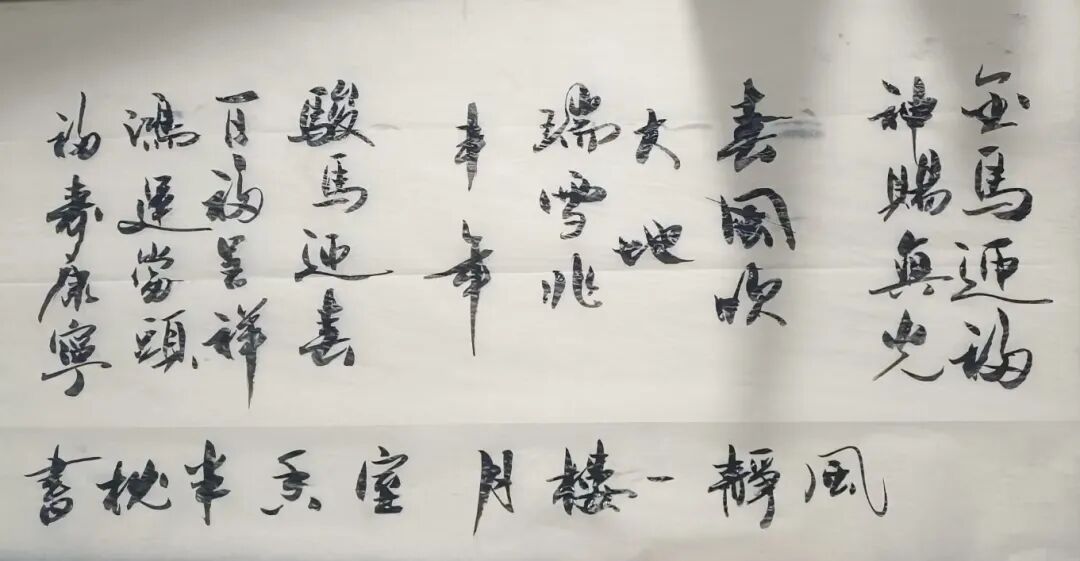 金馬迎福
神賜真光
春風吹
大地
瑞雪兆
丰年
駿馬迎春
百福呈祥
鴻運當頭
福壽康寧
風靜一樓月
室香半枕書